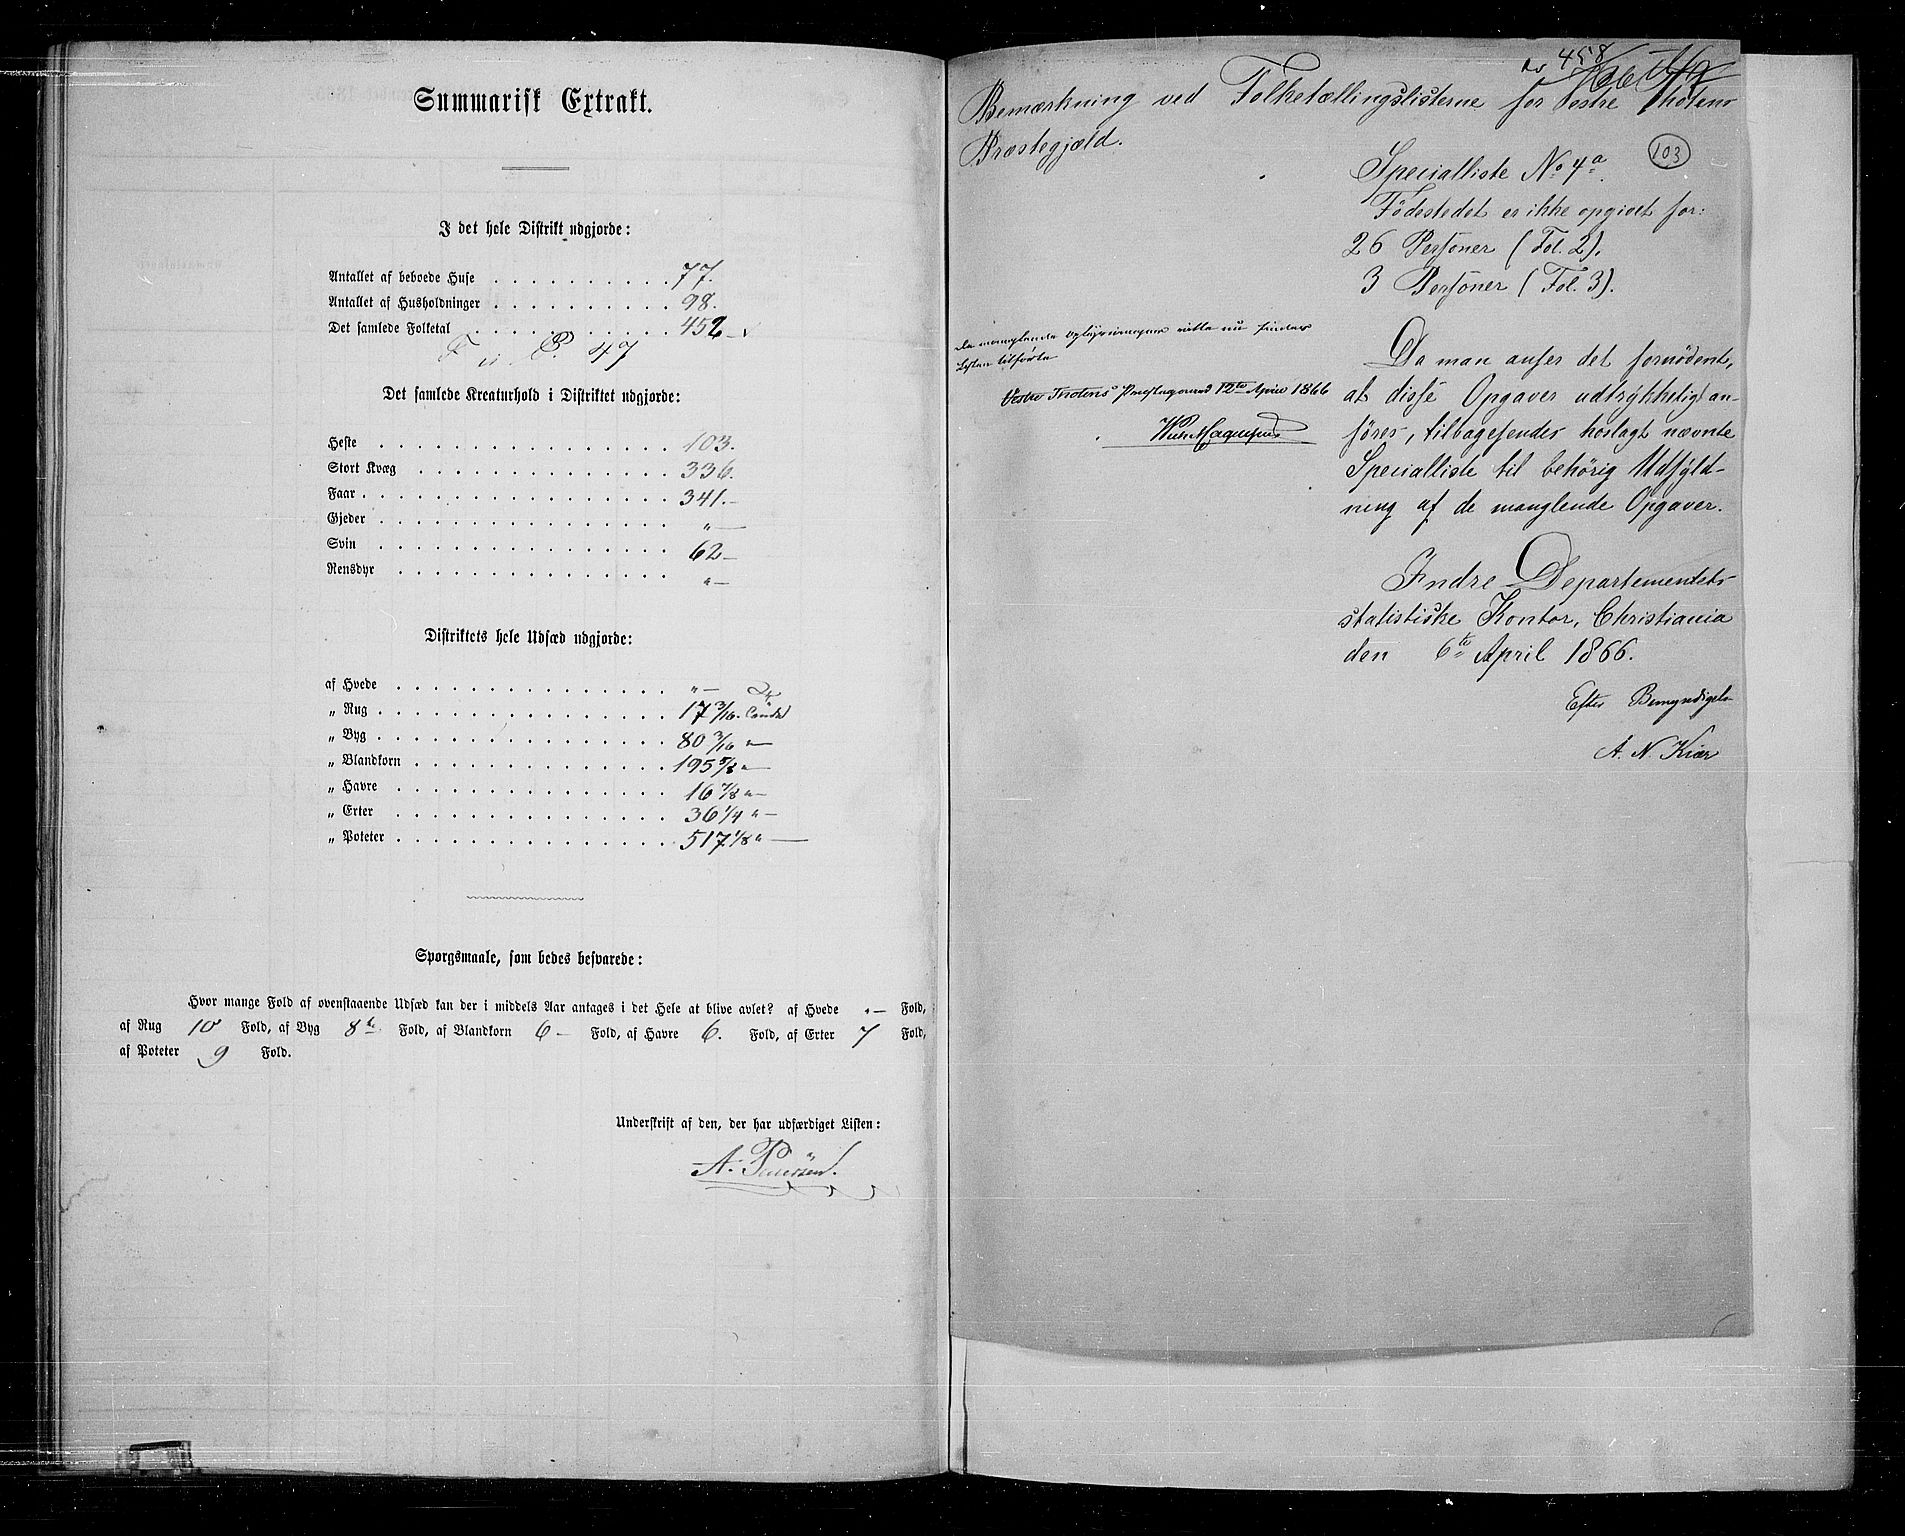 Summarisk Extrakt.
I det hele Distrikt udgjorde:
Antallet af beboede Huse . . . . . . . . . . 77.
Antallet af Husholdninger . . . . . . . . . . 98.
Det samlede Folketal . . . . . . . . . . . 452
47
Det samlede Kreaturhold i Distriktet udgjorde:
Heste . . . . . . . . . . . . . . . . 103.
Stort Kvæg . . . . . . . . . . . . . . 336.
Faar . . . . . . . . . . . . . . . . . 341.—
Gjeder . . . . . . . . . . . . . . . . „—
Svin . . . . . . . . . . . . . . . . 62—
Rensdyr . . . . . . . . . . . . . . . „—
Distriktets hele Udsæd udgjorde:
af Hvede . . . . . . . . . . . . . . . „—
„ Rug . . . . . . . . . . . . . . . . 17 3/16.
„ Byg . . . . . . . . . . . . . . . . 80 3/16 „—
„ Blandkorn . . . . . . . . . . . . . . 195 5/8 „—
„ Havre . . . . . . . . . . . . . . . 16 7/8 „—
„ Erter . . . . . . . . . . . . . . . 36 1/4 „—
„ Poteter . . . . . . . . . . . . . . . 517 1/8 „—
Spørgsmaale, som bedes besvarede:
Hvor mange Fold af ovenstaaende Udsæd kan der i middels Aar antages i det Hele at blive avlet? af Hvede „— Fold,
af Rug 10 Fold, af Byg 8 Fold, af Blandkorn 6— Fold, af Havre 6. Fold, af Erter 7 Fold,
af Poteter 9 Fold.
Underskrift af den, der har udfærdiget Listen:
A.
458
Bemærkning ved Folketællingslisterne for Vestre Thotens
Præstegjæld.
103
Specialliste No 4a.
Fødestedet er ikke opgivet for:
26 Personer (Fol. 2).
3 Personer (Fol. 3).
De manglende Oplysninger ville nu findes
Listen tilførte
Vestre Thotens Præstegaard 12te April 1866
Da man anser det fornødent,
at disse Opgaver udtrykkeligt an-
føres, tilbagesendes hoslagt nævnte
Specialliste til behørig Udfyld-
ning af de manglende Opgaver.
Indre Departementets
statistiske Kontor, Christiania
den 6te April 1866.
Efter Bemyndigelse
A. N. Kiær